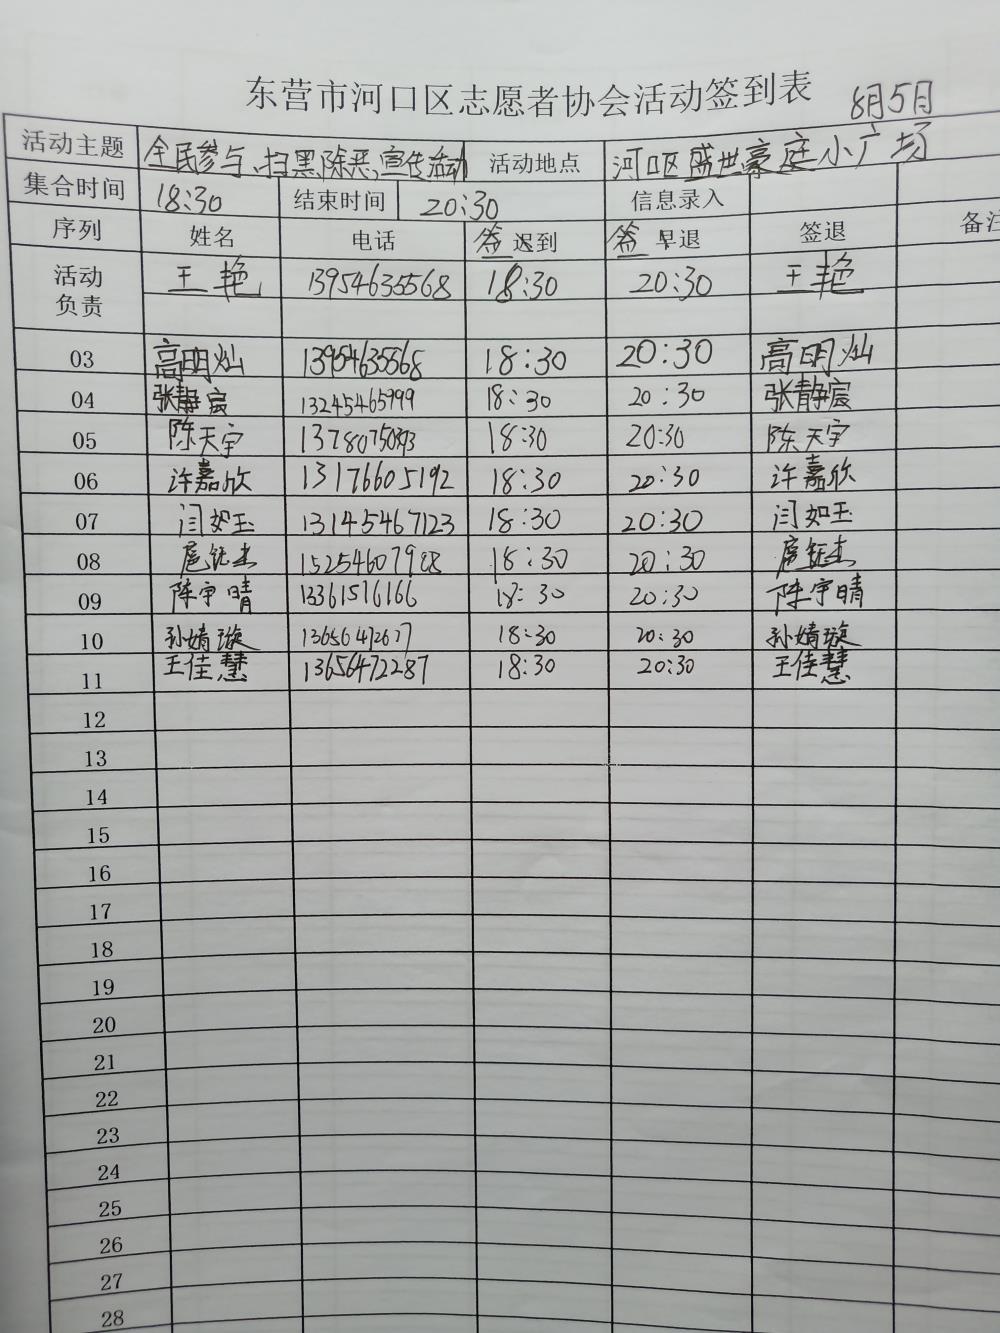 东营市河口区志愿者协会活动签到表 8月5日
活动主题 全民参与,扫黑除恶,宣传活动 活动地点 河口区盛世豪庭小广场
集合时间 18:30 结束时间 20:30 信息录入
序列 姓名 电话 签 迟到 签 早退 签退 备注
活动负责 王艳 13954635568 18:30 20:30 王艳
03 高明灿 13954635568 18:30 20:30 高明灿
04 张静宸 13245465999 18:30 20:30 张静宸
05 陈天宇 18:30 20:30 陈天宇
06 许嘉欣 13176605192 18:30 20:30 许嘉欣
07 闫如玉 13145467123 18:30 20:30 闫如玉
08 18:30 20:30
09 陈宇晴 13361516166 18:30 20:30 陈宇晴
10 孙婧璇 18:30 20:30 孙婧璇
11 王佳慧 13656472287 18:30 20:30 王佳慧
12
13
14
15
16
17
18
19
20
21
22
23
24
25
26
27
28